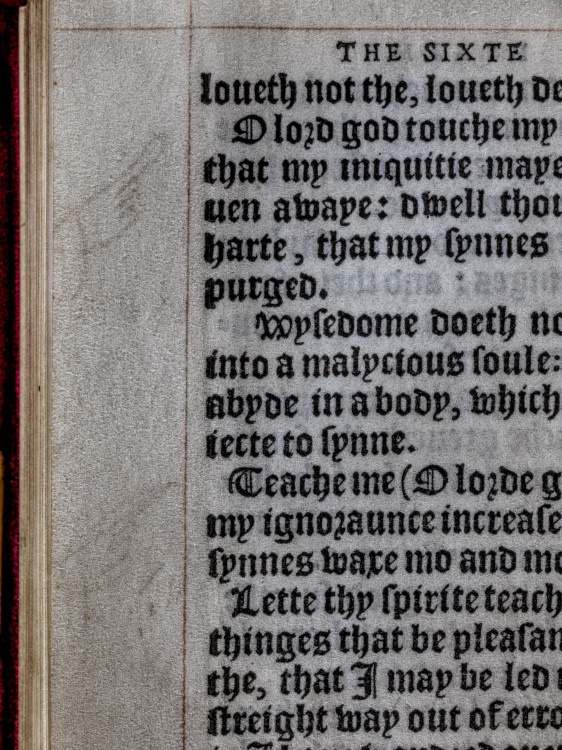 THE SIXTE
loueth not the, loueth de
O lord god touche my
that my iniquitie maye
uen awaye: dwell thou
harte, that my synnes
purged.
Wysedome doeth no
into a malycious soule:
abyde in a body, which
iecte to synne.
Teache me (O lorde g
my ignoraunce increase
synnes waxe mo and mo
Lette thy spirite teach
thinges that be pleasan
the, that I may be led
streight way out of erro